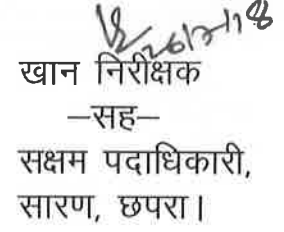 26/2/18
खान निरीक्षक
–सह–
सक्षम पदाधिकारी,
सारण, छपरा।